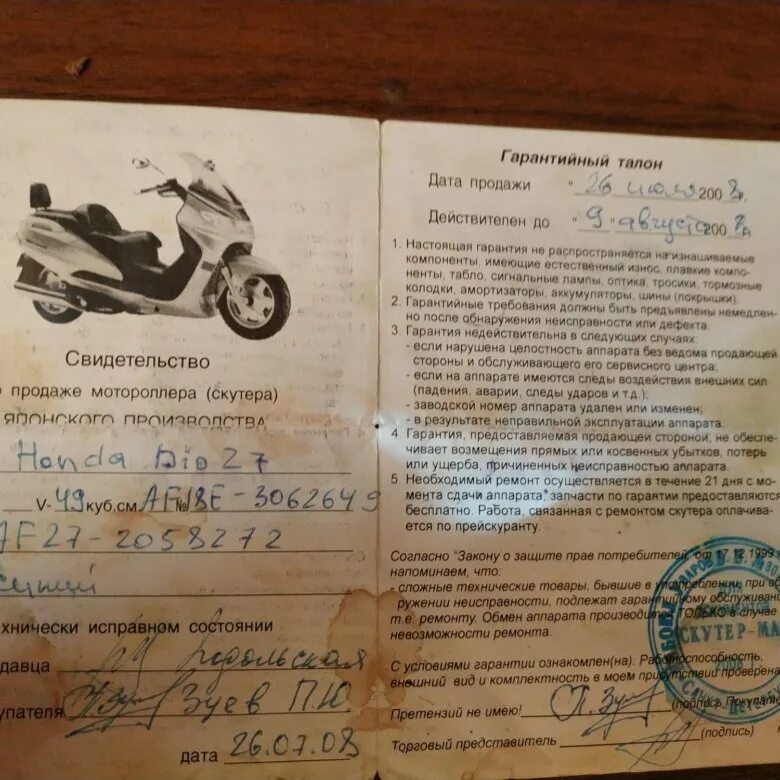 Свидетельство
о продаже мотороллера (скутера)
ЯПОНСКОГО ПРОИЗВОДСТВА
Honda Dio 27
V-49 куб.см. AF18E-3062649
AF27-2058272
технически исправном состоянии
давца Подольская
купателя Зуев П.Ю
дата 26.07.08
Гарантийный талон
Дата продажи "26 июля 2008г.
Действителен до "9 августа 2008г.
1. Настоящая гарантия не распространяется на изнашиваемые
компоненты, имеющие естественный износ, плавкие компо-
ненты, табло, сигнальные лампы, оптика, тросики, тормозные
колодки, амортизаторы, аккумуляторы, шины (покрышки).
2. Гарантийные требования должны быть предъявлены немедлен-
но после обнаружения неисправности или дефекта.
3. Гарантия недействительна в следующих случаях:
- если нарушена целостность аппарата без ведома продающей
стороны и обслуживающего его сервисного центра;
- если на аппарате имеются следы воздействия внешних сил
(падения, аварии, следы ударов и т.д.);
- заводской номер аппарата удален или изменен;
- в результате неправильной эксплуатации аппарата.
4. Гарантия, предоставляемая продающей стороной, не обеспе-
чивает возмещения прямых или косвенных убытков, потерь
или ущерба, причиненных неисправностью аппарата.
5. Необходимый ремонт осуществляется в течение 21 дня с мо-
мента сдачи аппарата, запчасти по гарантии предоставляются
бесплатно. Работа, связанная с ремонтом скутера оплачива-
ется по прейскуранту.
Согласно "Закону о защите прав потребителей, от 17.12.1999
напоминаем, что:
- сложные технические товары, бывшие в употреблении, при об
ружении неисправности, подлежат гарантийному обслуживани
т.е. ремонту. Обмен аппарата производится ТОЛЬКО в случае
невозможности ремонта.
С условиями гарантии ознакомлен(на). Работоспособность,
внешний вид и комплектность в моем присутствии проверена
Претензий не имею! (подпись Покупате
Торговый представитель (подпись)
СКУТЕР-МА